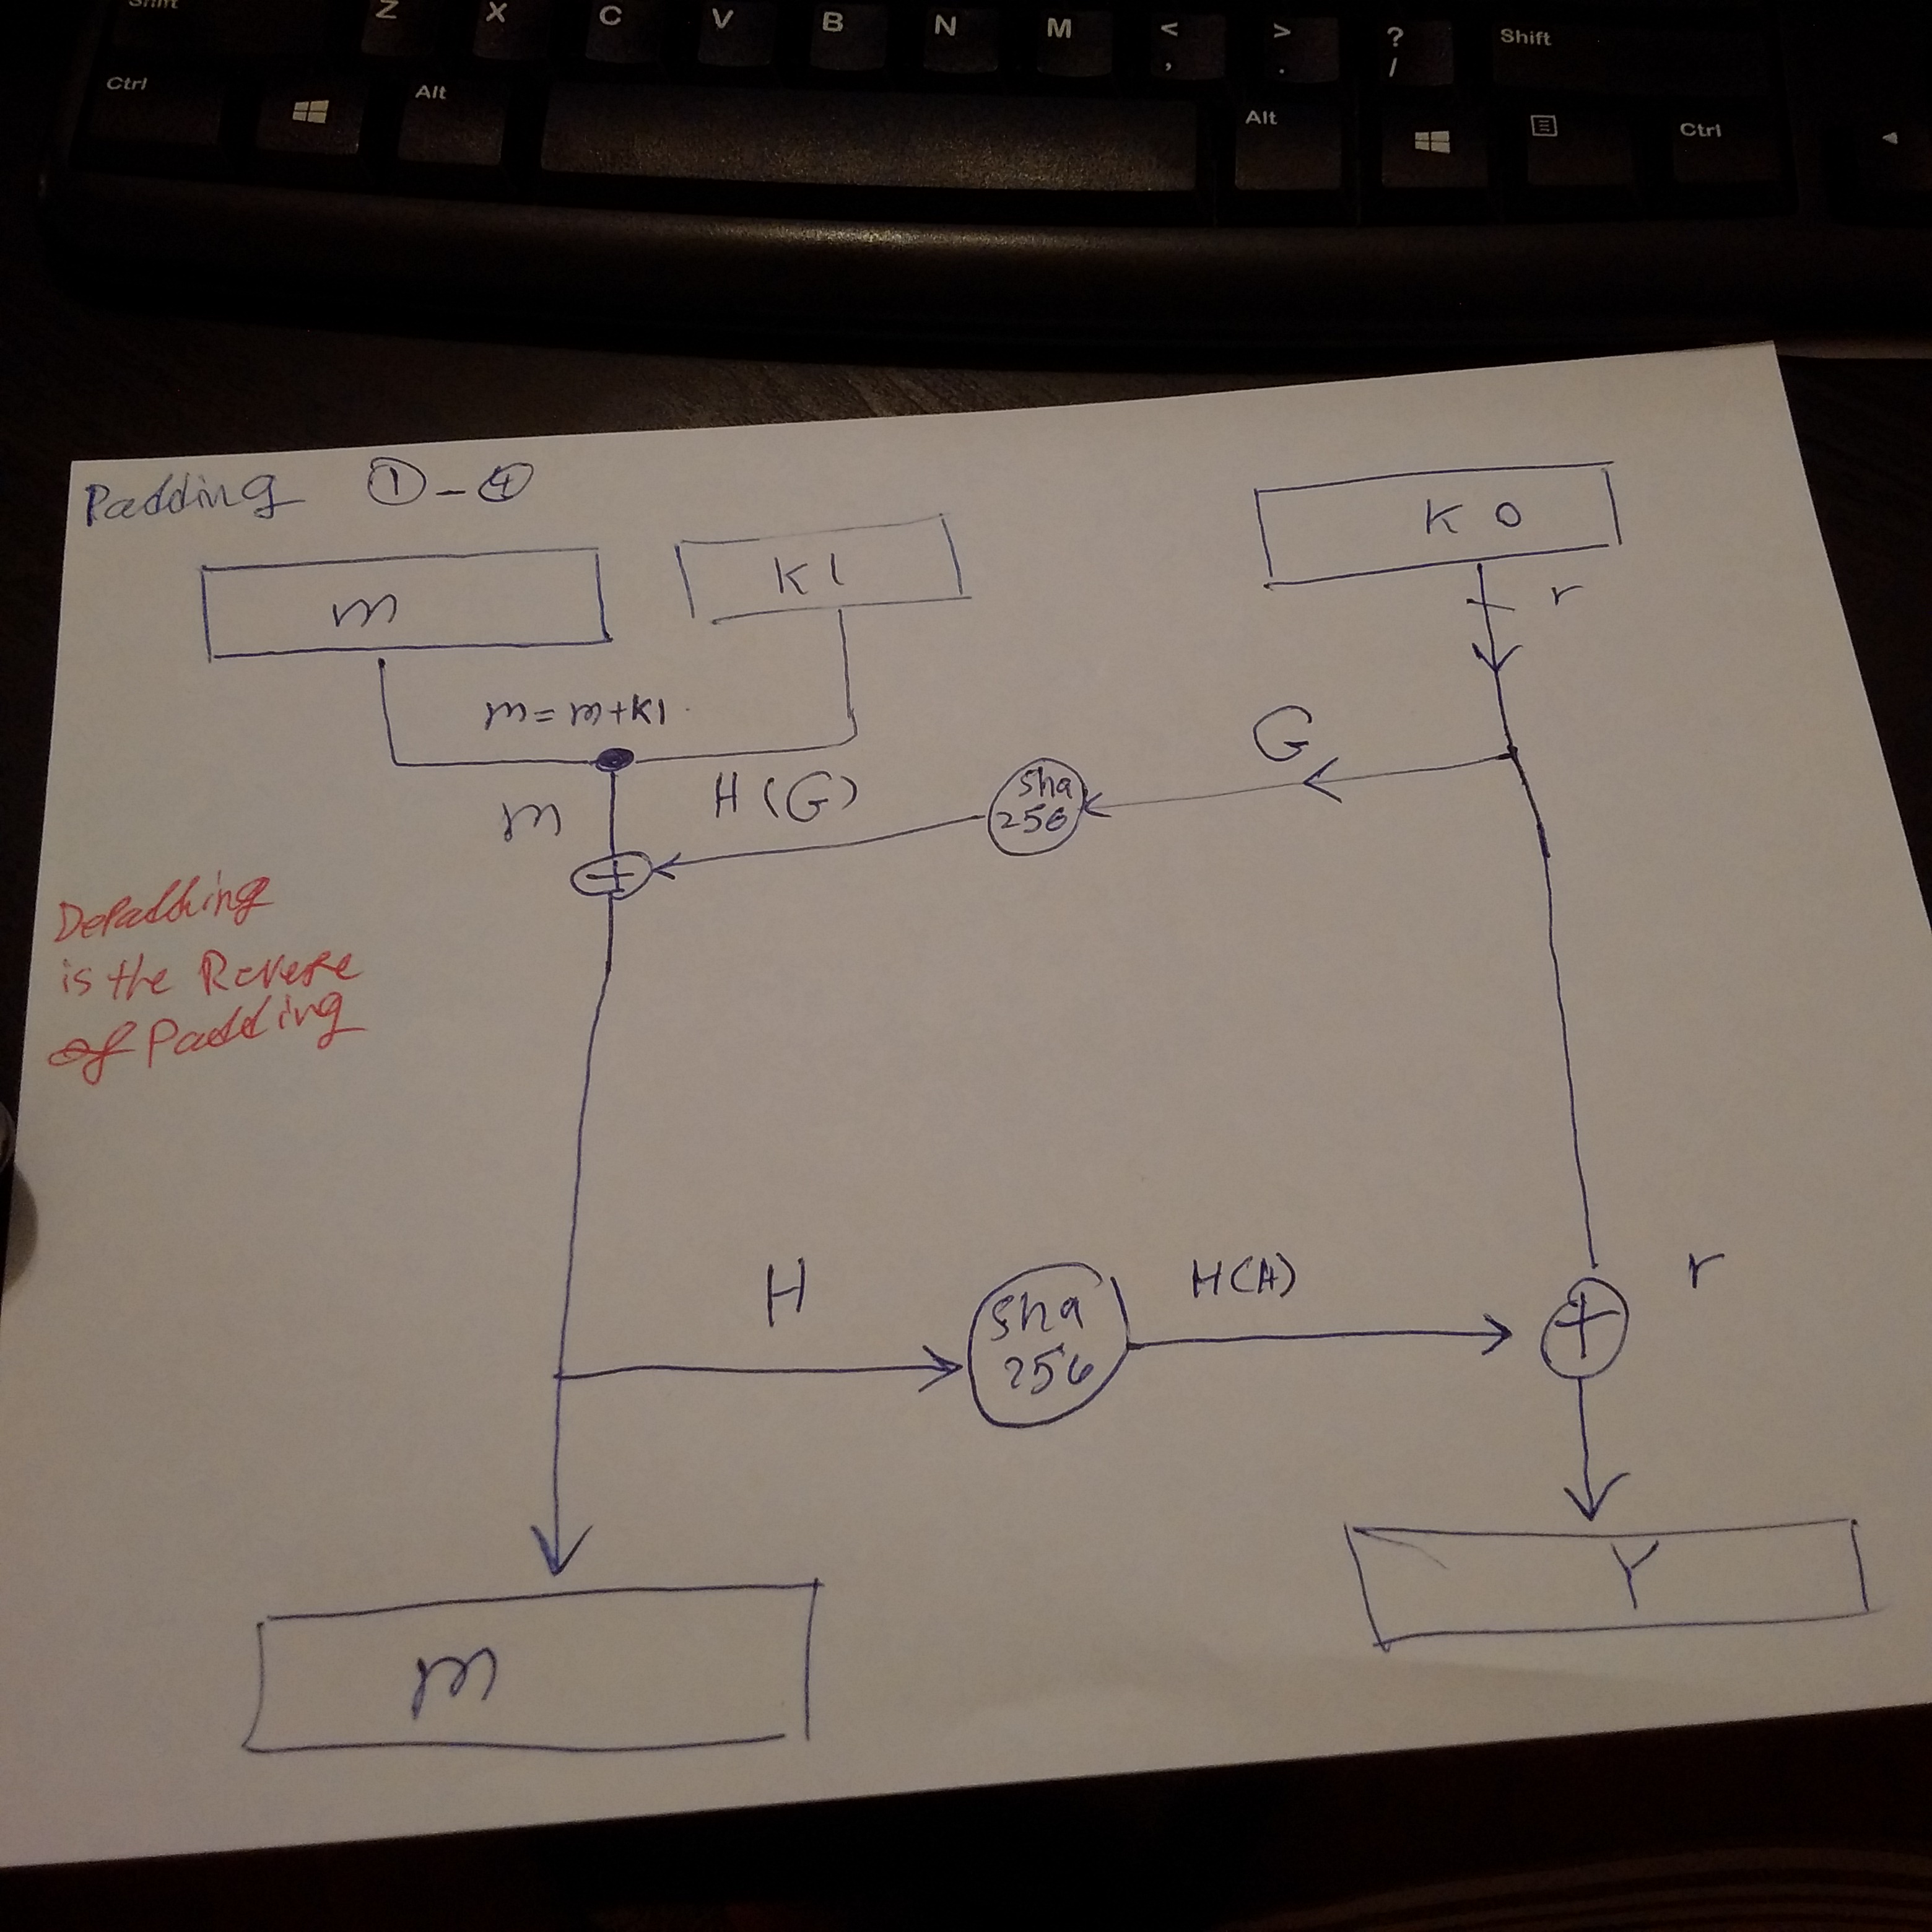 Shift Z X C V B N M < , > . ? / Shift
Ctrl Alt Alt Ctrl
Padding ① - ④
m
K1
K 0
r
m = m + K1
G
m
H (G)
sha
256
+
Depadding
is the Reverse
of Padding
H
sha
256
H(A)
+
r
m
Y